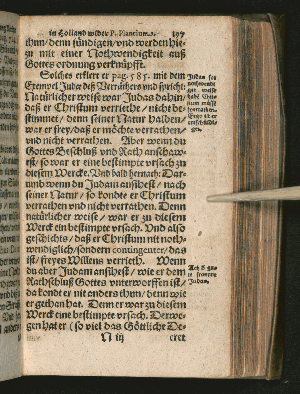 in Holland wider P. Plancium. 197
thun/denn sündigen/und werden hie-
zu mit einer Nothwendigkeit auß
Gottes ordnung verknüpfft.
Solches erklert er pag. 585. mit dem
Exempel Juda deß Verräthers und spricht:
Natürlicher weise war Judas dahin/
daß er Christum verriethe/ nicht be-
stimmet/ denn seiner Natur halben/
war er frey/daß er möchte verrathen/
und nicht verrathen. Aber wenn du
Gottes Beschluß und Rath anschaw-
est/ so war er eine bestimpte ursach zu
diesem Wercke. Und bald hernach: Dar-
umb wenn du Judam ansihest/ nach
seiner Natur/ so kondte er Christum
verrathen und nicht verrathen. Denn
natürlicher weise/ war er zu diesem
Werck ein bestimpte ursach. Und also
geschichts/ daß er Christum mit noth-
wendiglich/sondern contingenter/ das
ist/ freyes Willens verrieth. Wenn
du aber Judam ansihest/ wie er dem
Rathschluß Gottes unterworffen ist/
da kondt er nit anders thun/ denn wie
er gethan hat. Denn er war zu diesem
Werck eine bestimpte ursach. Derwe-
gen hat er (so viel das Göttliche De-
N iij cret
Judas
weise
Ach
Judam.